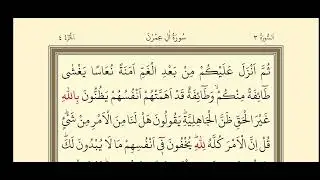 السورة ٣ سورة آل عمرن الجزء ٤
ثُمَّ اَنْزَلَ عَلَيْكُمْ مِنْ بَعْدِ الْغَمِّ اَمَنَةً نُعَاسًا يَغْشٰى
طَائِفَةً مِنْكُمْ وَطَائِفَةٌ قَدْ اَهَمَّتْهُمْ اَنْفُسُهُمْ يَظُنُّونَ بِاللّٰهِ
غَيْرَ الْحَقِّ ظَنَّ الْجَاهِلِيَّةِ يَقُولُونَ هَلْ لَنَا مِنَ الْاَمْرِ مِنْ شَيْءٍ
قُلْ اِنَّ الْاَمْرَ كُلَّهُ لِلّٰهِ يُخْفُونَ فِى اَنْفُسِهِمْ مَا لَا يُبْدُونَ لَكَ